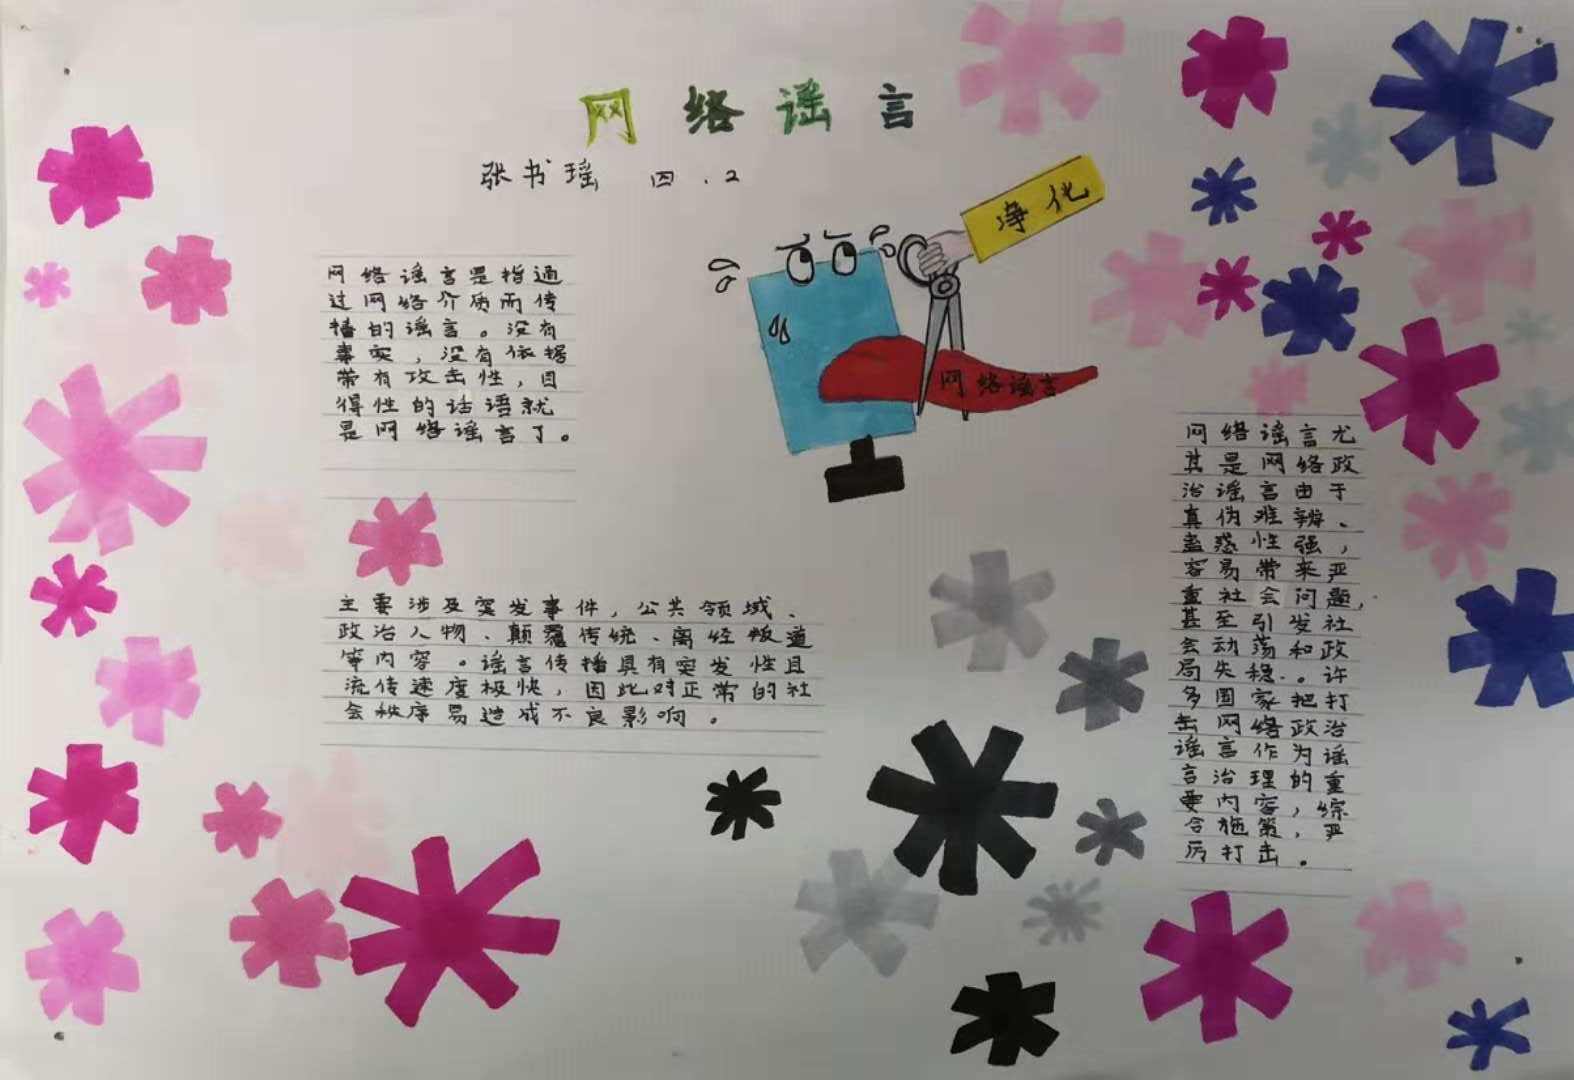 网络谣言
张书瑶 四.2
净化
网络谣言是指通
过网络介质而传
播的谣言。没有
事实，没有依据
带有攻击性，目
得性的话语就
是网络谣言了。
网络谣言
主要涉及突发事件，公共领域、
政治人物、颠覆传统、离经叛道
等内容。谣言传播具有突发性且
流传速度极快，因此对正常的社
会秩序易造成不良影响。
网络谣言尤
其是网络政
治谣言由于
真伪难辨、
蛊惑性强，
容易带来严
重社会问题，
甚至引发社
会动荡和政
局失稳.。许
多国家把打
击网络政治
谣言作为谣
言治理的重
要内容，综
合施策，严
厉打击。